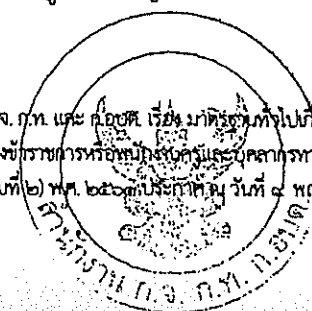 จ. ก.ท. และ ก.อบต. เรื่อง มาตรฐานทั่วไปเกี่
งข้าราชการหรือพนักงานครูและบุคลากรทา
ที่ ๒) พ.ศ. ๒๕๖๑ ประกาศ ณ วันที่ ๔ พฤ
สำนักงาน ก.จ. ก.ท. ก.อบต.